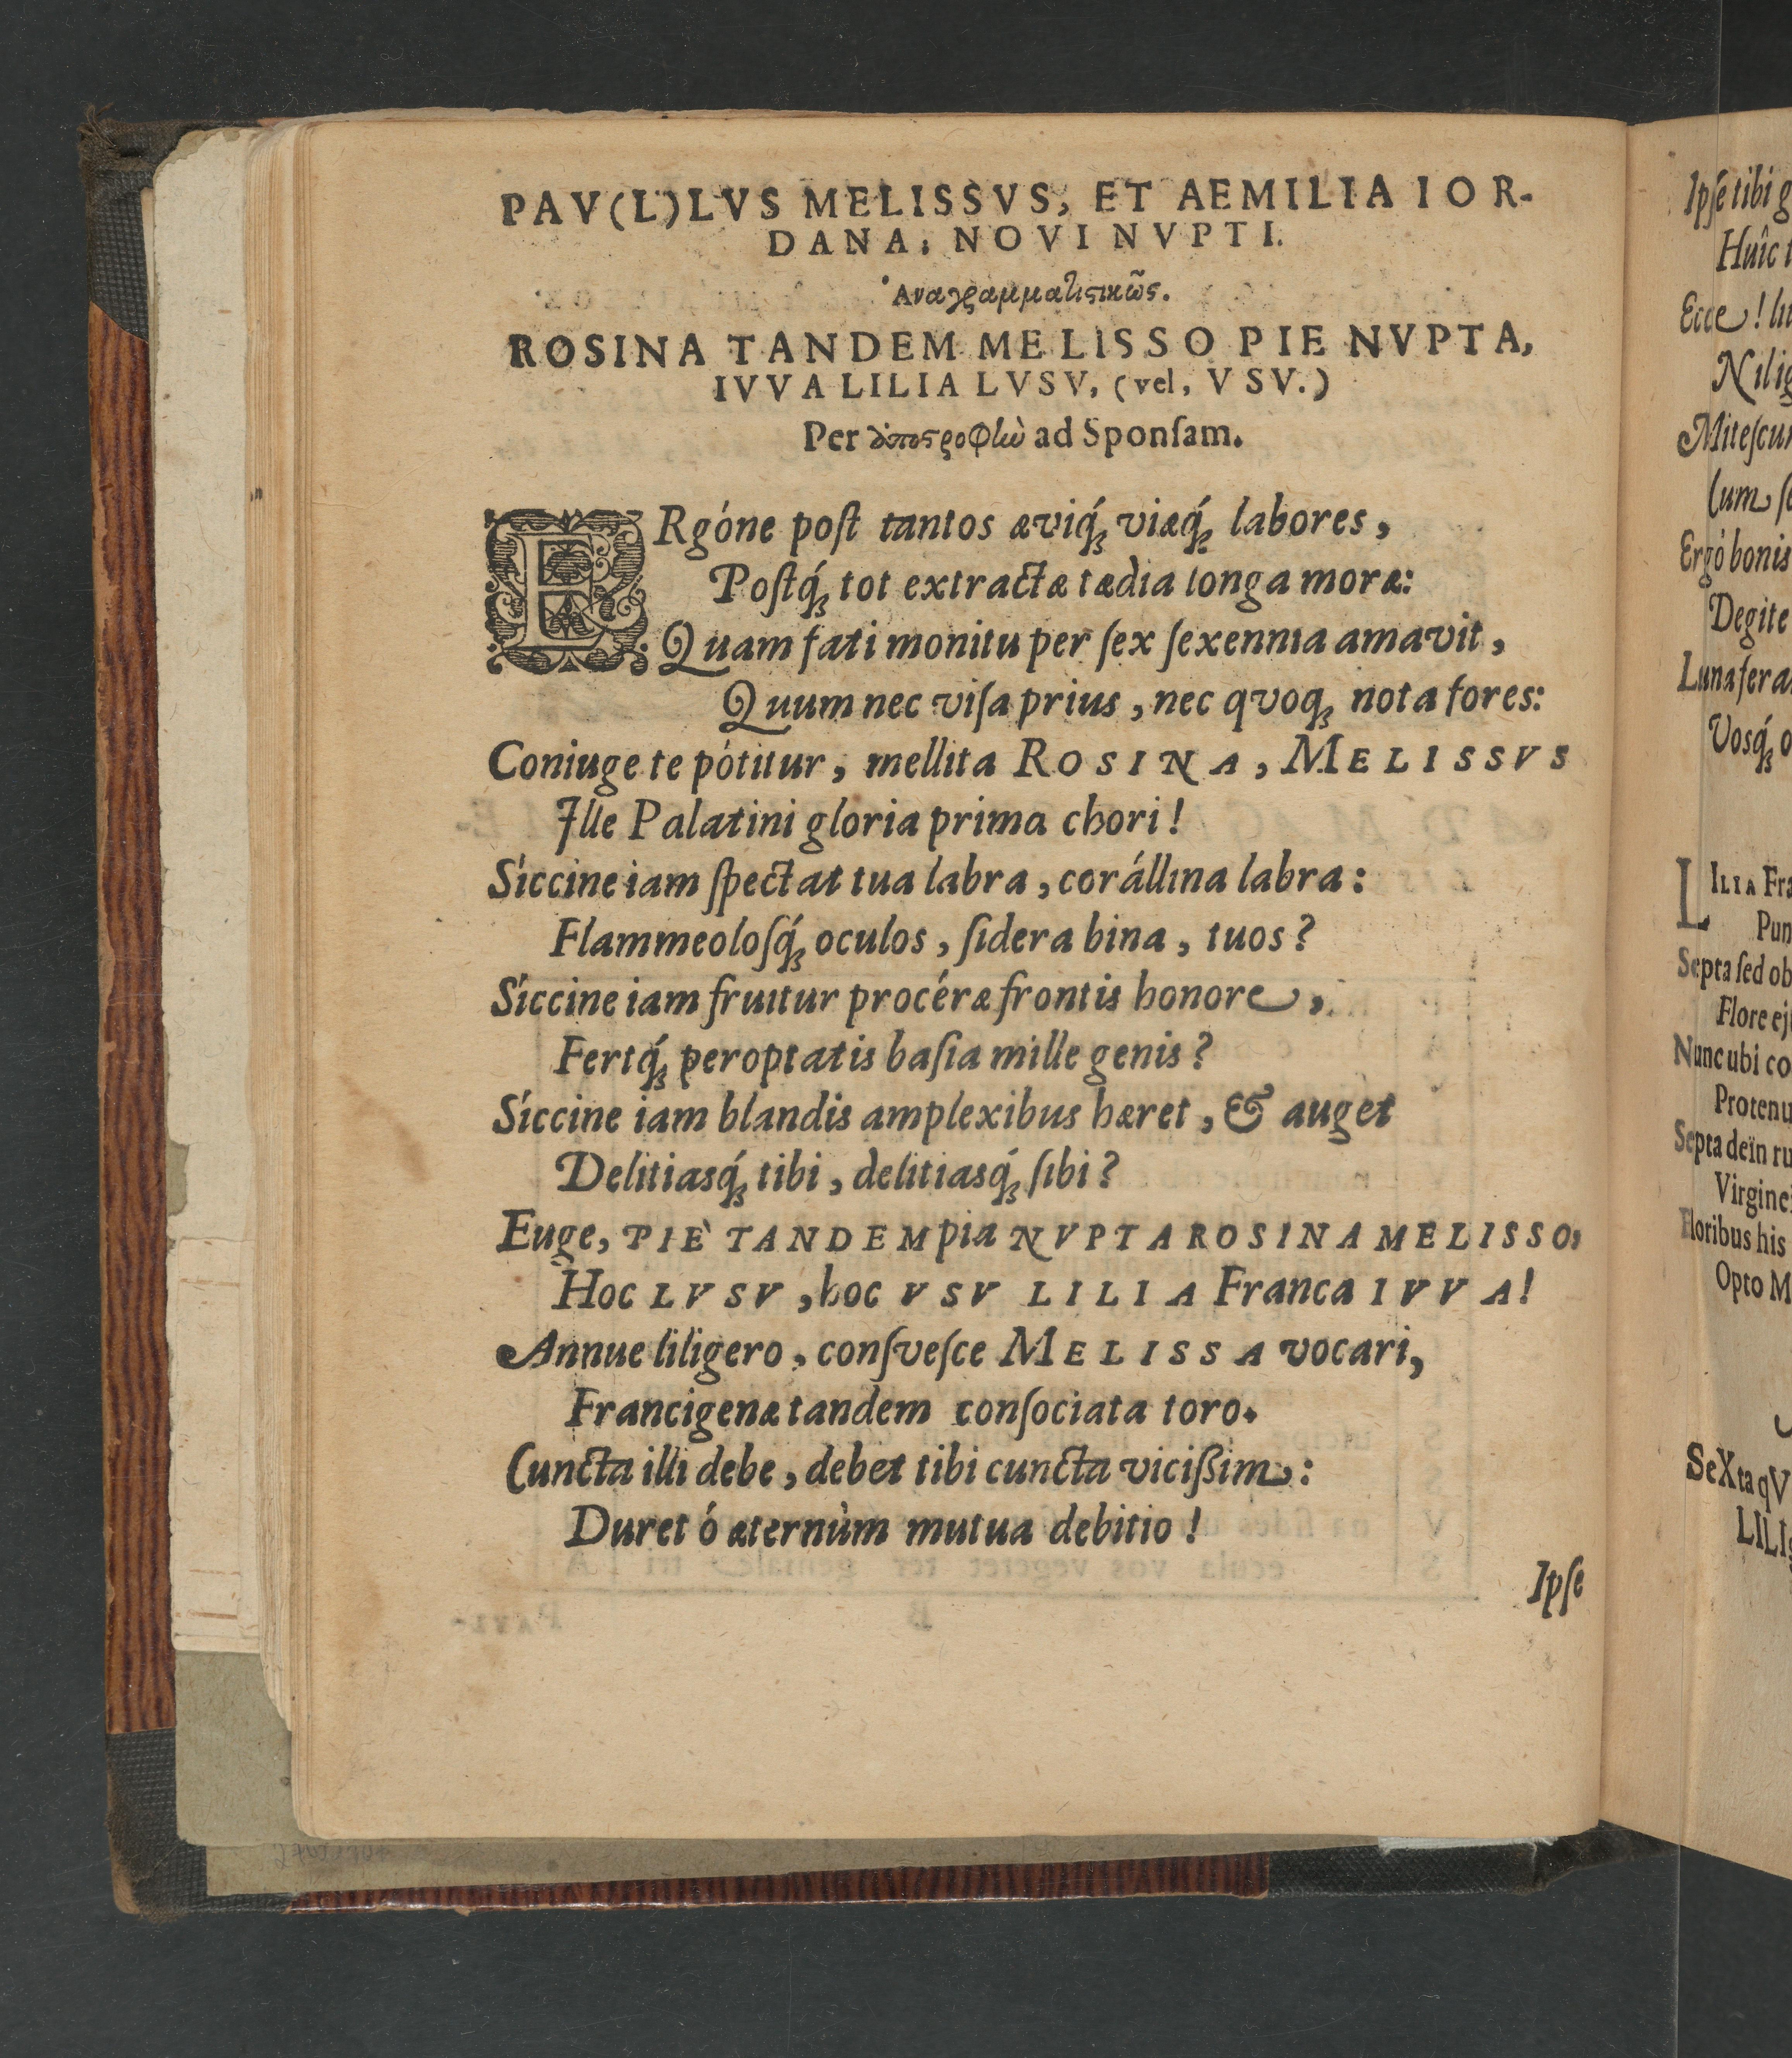 PAV(L)LVS MELISSVS, ET AEMILIA IOR-
DANA: NOVI NVPTI.
Ἀναγραμματιϛικῶς.
ROSINA TANDEM MELISSO PIE NVPTA,
IVVA LILIA LVSV, (vel, VSV.)
Per ἀποϛροφὴν ad Sponſam.
ERgóne poſt tantos æviq́ꝫ viæq́ꝫ labores,
Poſtq́ꝫ tot extractæ tædia longa moræ:
Quam fati monitu per ſex ſexennia amavit,
Quum nec viſa prius, nec qvoqꝫ nota fores:
Coniuge te pótitur, mellita ROSINA, MELISSVS
Ille Palatini gloria prima chori!
Síccine iam ſpectat tua labra, corállina labra:
Flammeoloſq́ꝫ oculos, ſidera bina, tuos?
Síccine iam fruitur procéræ frontis honore,
Fertq́ꝫ peroptatis baſia mille genis?
Síccine iam blandis amplexibus hæret, & auget
Delitiasq́ꝫ tibi, delitiasq́ꝫ ſibi?
Euge, PIÈ TANDEM pia NVPTA ROSINA MELISSO,
Hoc LVSV, hoc VSV LILIA Franca IVVA!
Annue liligero, conſveſce MELISSA vocari,
Francigenæ tandem conſociata toro.
Cuncta illi debe, debet tibi cuncta viciſſim:
Duret ó æternùm mutua debitio!
Ipſe
Ipſe tibi
Huîc
Ecce!
Miteſcu
Cum
Ergó bonis
Degite
Luna fera
Vosq́ꝫ
LILIA
Septa ſed ob
Flore
Nunc ubi
Septa deïn
Floribus his
Opto
SeXta qV